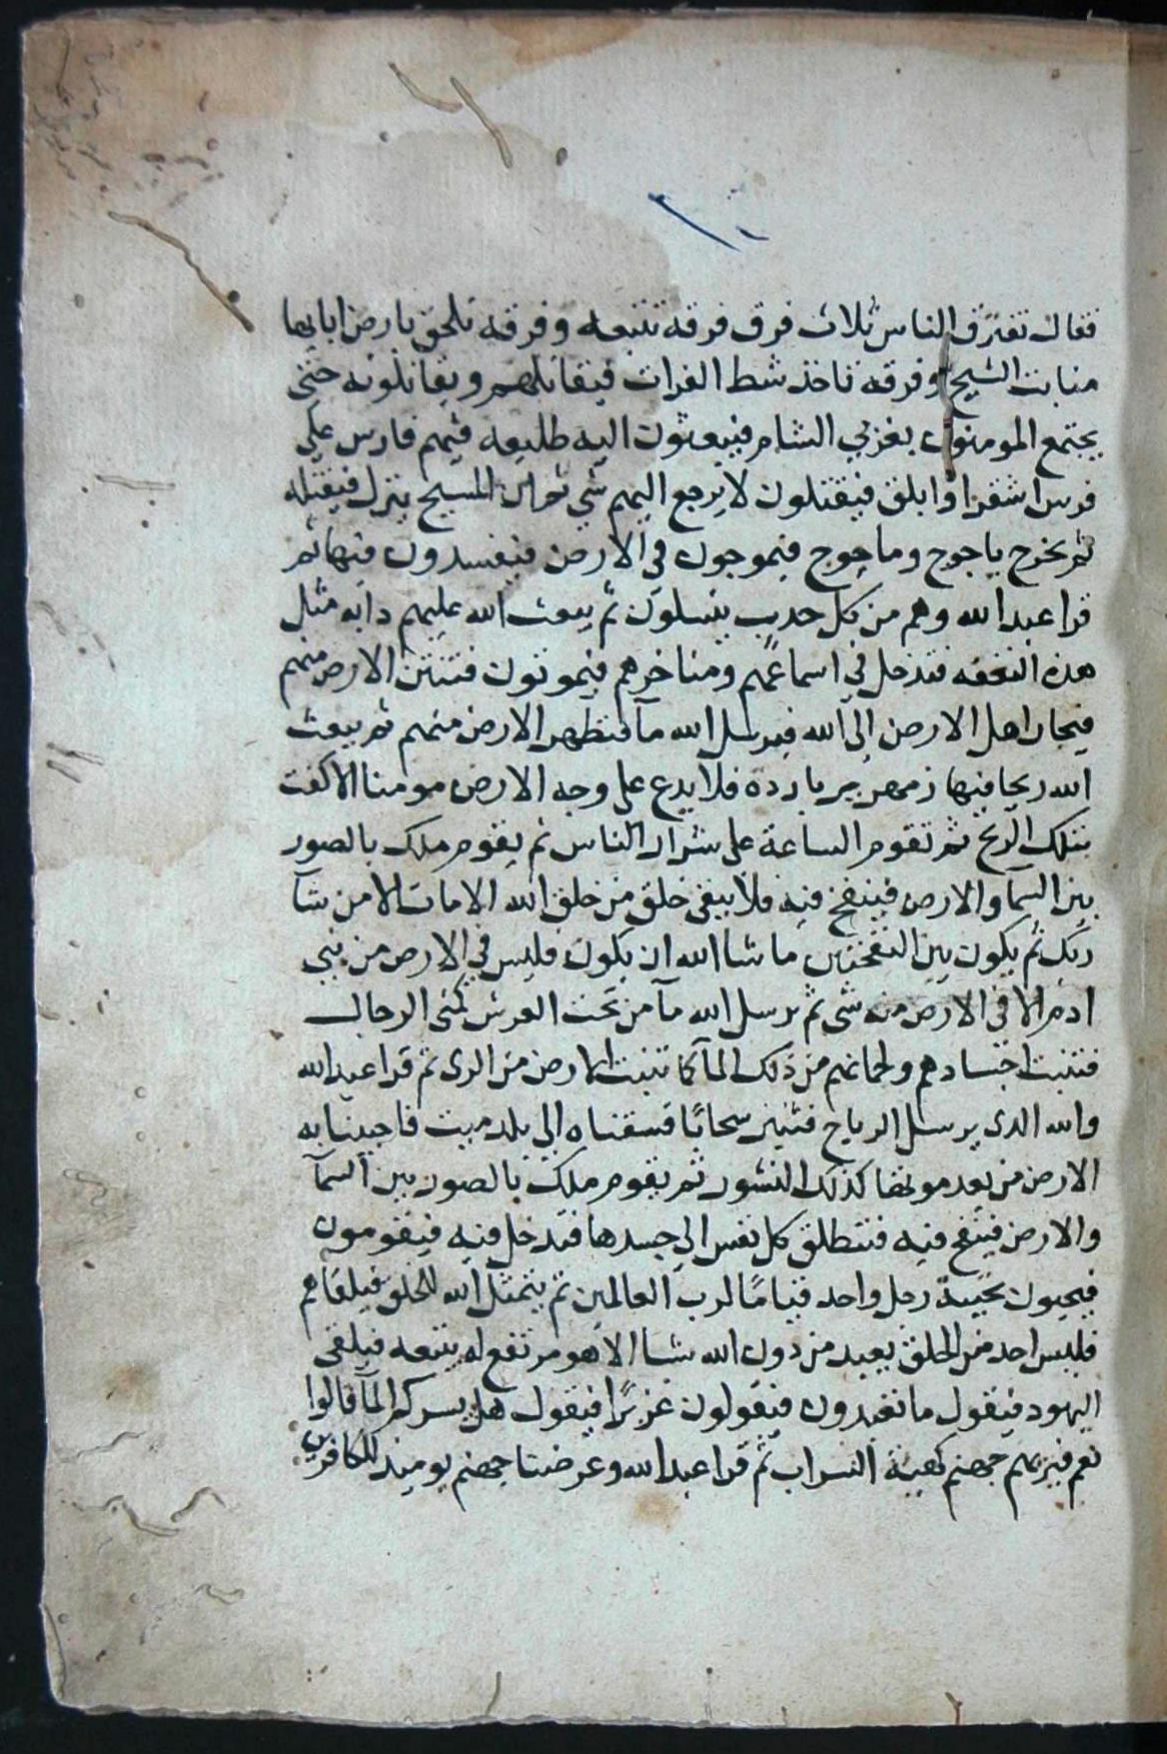 فقال تفترق الناس ثلاث فرق فرقه تتبعه وفرقه تلحق بارض ابايها
منابت الشيح وفرقه تاخذ شط الفرات فيقاتلهم ويقاتلونه حتى
يجتمع المومنون بغربي الشام فيبعثون اليه طليعه فيهم فارس على
فرس اشقر او ابلق فيقتلون لا يرجع اليهم شي ثم ان المسيح ينزل فيقتله
ثم يخرج ياجوج وماجوج فيموجون في الارض فيفسدون فيها ثم
قرا عبد الله وهم من كل حدب ينسلون ثم يبعث الله عليهم دابه مثل
هذه النغفه فتدخل في اسماعهم ومناخرهم فيموتون فتنتن الارض منهم
فيجار اهل الارض الى الله فيرسل الله مآ فتطهر الارض منهم ثم يبعث
الله ريحا فيها زمهرير بارده فلا يدع على وجه الارض مومنا الا كفت
بتلك الريح ثم تقوم الساعة على شرار الناس ثم يقوم ملك بالصور
بين السمآ والارض فينفخ فيه فلا يبقى خلق من خلق الله الا مات الا من شآ
ربك ثم يكون بين النفختين ما شا الله ان يكون فليس في الارض من بني
ادم الا في الارض منه شى ثم يرسل الله مآ من تحت العرش كمنى الرجال
فتنبت اجسادهم ولحمانهم من ذلك المآ كما تنبت الارض من الرى ثم قرا عبد الله
والله الذى يرسل الرياح فتثير سحابًا فسقناه الى بلد ميت فاحيينا به
الارض من بعد موتها كذلك النشور ثم يقوم ملك بالصور بين السمآ
والارض فينفخ فيه فتنطلق كل نفس الى جسدها فتدخل فيه فيقومون
فيحيون تحية رجل واحد قيامًا لرب العالمين ثم يتمثل الله للخلق فيلقاهم
فليس احد من الخلق يعبد من دون الله شيا الا هو مرتفع له يتبعه فيلقى
اليهود فيقول ما تعبدون فيقولون عزيرًا فيقول هل يسركم المآ قالوا
نعم فيريهم جهنم كهية السراب ثم قرا عبد الله وعرضنا جهنم يوميذ للكافرين